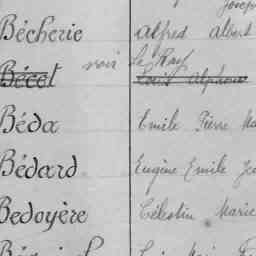 Joseph
Bécherie Alfred Albert
voir Le Ray
Bécel Louis Alphonse
Béda Emile Pierre Ma
Bédard Eugène Emile Jos
Bedoyère Célestin Marie